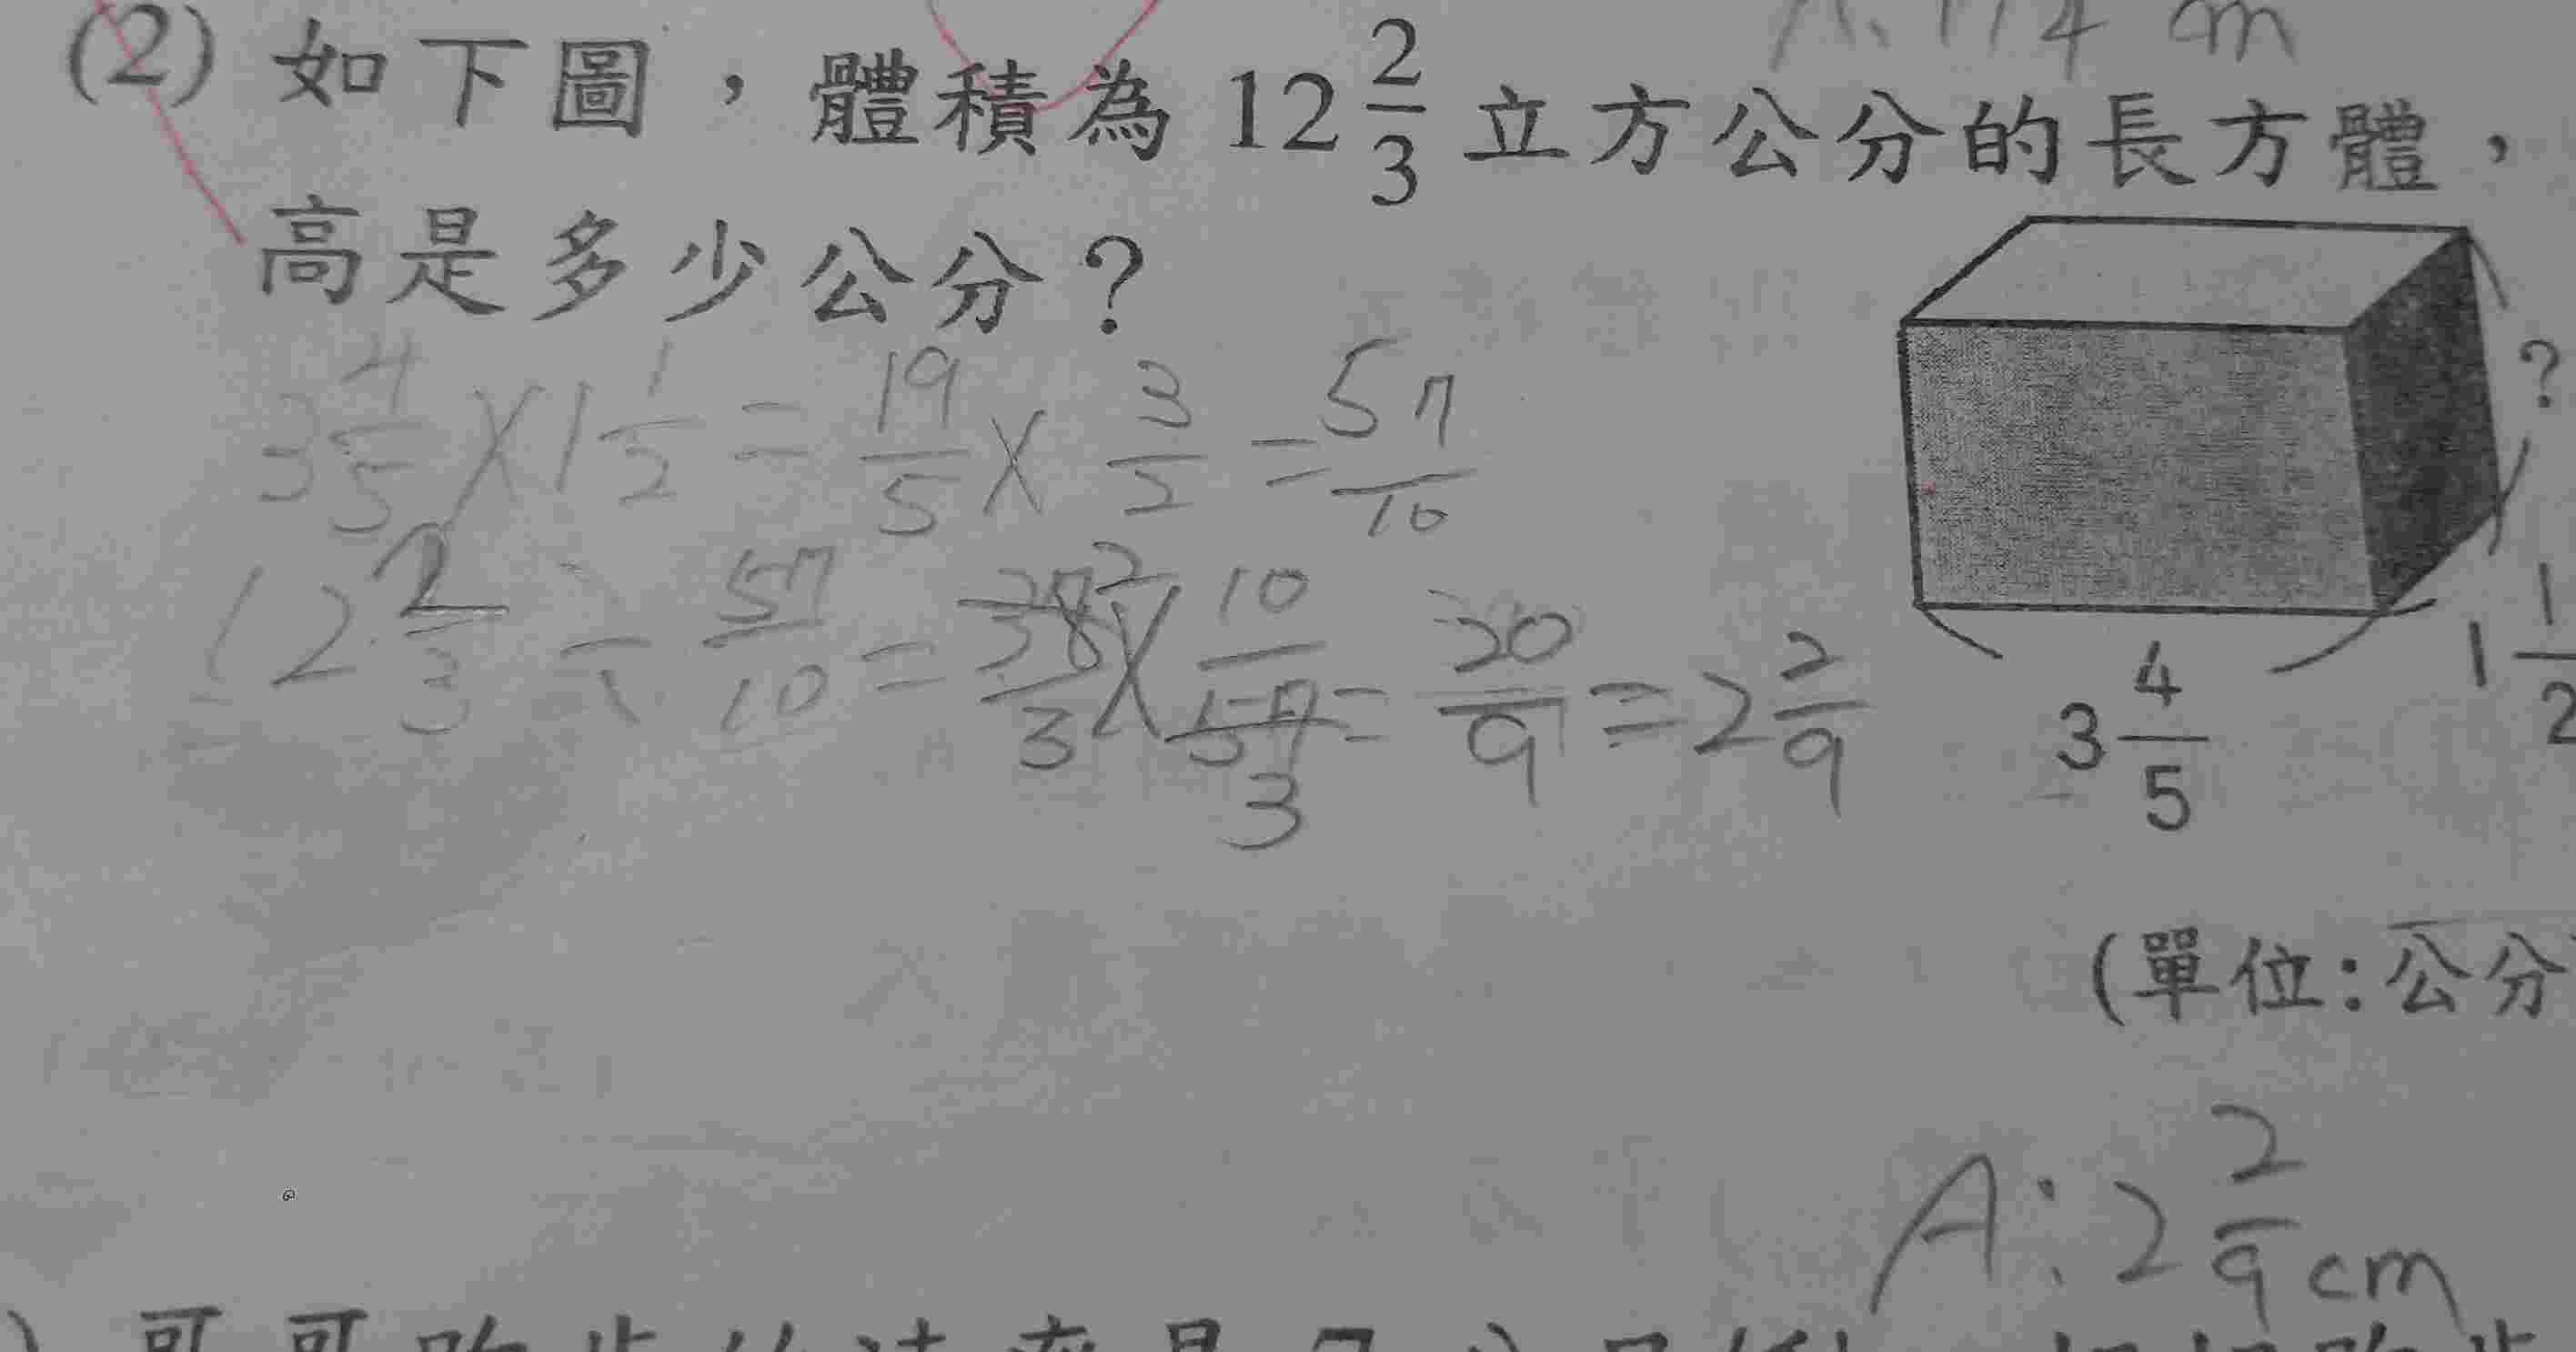 (2) 如下圖，體積為 12 2/3 立方公分的長方體，
高是多少公分？
3 4/5 × 1 1/2 = 19/5 × 3/2 = 57/10
12 2/3 ÷ 57/10 = 38/3 × 10/57 = 20/9 = 2 2/9
2
3
?
1 1/2
3 4/5
(單位：公分
A: 2 2/9 cm